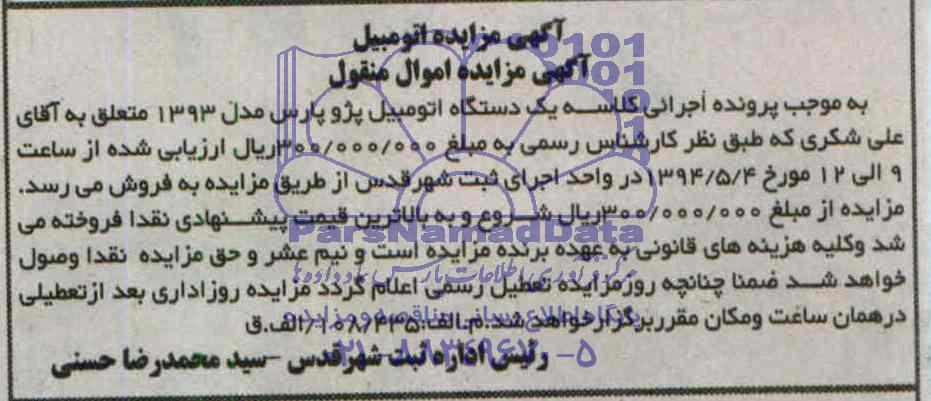 آگهی مزایده اتومبیل
آگهی مزایده اموال منقول
به موجب پرونده اجرائی کلاسه یک دستگاه اتومبیل پژو پارس مدل ۱۳۹۳ متعلق به آقای
علی شکری که طبق نظر کارشناس رسمی به مبلغ ۳۰۰/۰۰۰/۰۰۰ریال ارزیابی شده از ساعت
۹ الی ۱۲ مورخ ۱۳۹۴/۵/۴در واحد اجرای ثبت شهرقدس از طریق مزایده به فروش می رسد.
مزایده از مبلغ ۳۰۰/۰۰۰/۰۰۰ریال شروع و به بالاترین قیمت پیشنهادی نقدا فروخته می
شد وکلیه هزینه های قانونی به عهده برنده مزایده است و نیم عشر و حق مزایده نقدا وصول
خواهد شد ضمنا چنانچه روزمزایده تعطیل رسمی اعلام گردد مزایده روزاداری بعد ازتعطیلی
درهمان ساعت ومکان مقرربرگزارخواهد شد.م.الف
رئیس اداره ثبت شهرقدس -سید محمدرضا حسنی
ParsNamadData
مرکز فرآوری اطلاعات پارس نماد داده ها